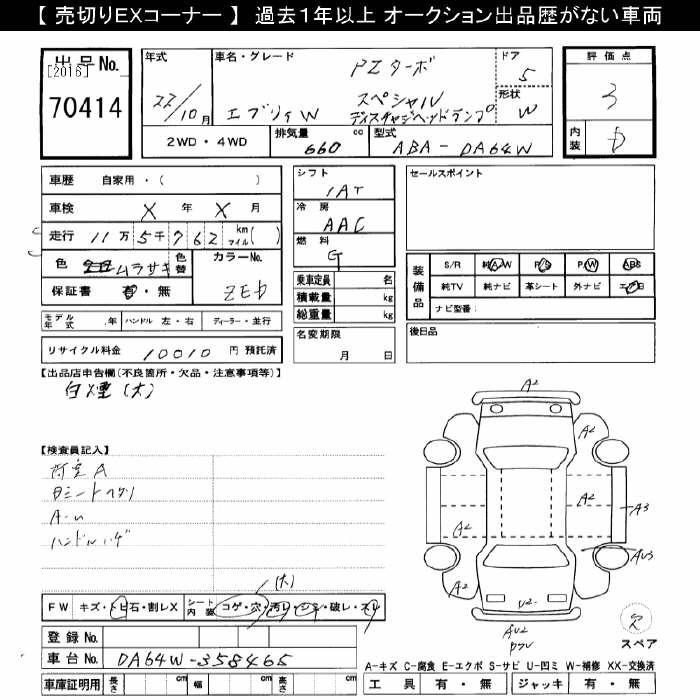 【 売切りEXコーナー 】 過去1年以上 オークション出品歴がない車両
出品No.
[2016]
70414
年式
22/10月
車名・グレード
エブリィW
PZターボ
スペシャル
ディスチャージヘッドランプ
ドア
5
形状
W
2WD・4WD
排気量
660
cc
型式
ABA-DA64W
評価点
3
内装
D
車歴 自家用・( )
車検 X 年 X 月
走行 11万5千762 km マイル( )
色 ムラサキ
色替
カラーNo.
ZED
保証書 有・無
モデル年式 .年 ハンドル 左・右 ディーラー・並行
リサイクル料金 10010 円 預託済
シフト
IAT
冷房
AAC
燃料
G
乗車定員 名
積載量 kg
総重量 kg
名変期限
月 日
セールスポイント
装備品
S/R 純A/W P/S P/W ABS
純TV 純ナビ 革シート 外ナビ エアB
ナビ型番:
後日品
【出品店申告欄(不良箇所・欠品・注意事項等)】
白煙(大)
【検査員記入】
荷室A
日シートヘタリ
A-u
ハンドルハゲ
(大)
FW キズ・トビ石・割レX
シート内装 コゲ・穴・汚レ・シミ・破レ・スレ
登録No.
車台No. DA64W-358465
車庫証明用 長さ cm 幅 cm 高さ cm
A2
A2
A2
A2
A2
A3
AU3
A2
A2
U2
AU2
欠
スペア
A-キズ C-腐食 E-エクボ S-サビ U-凹ミ W-補修 XX-交換済
工具 有・無 ジャッキ 有・無